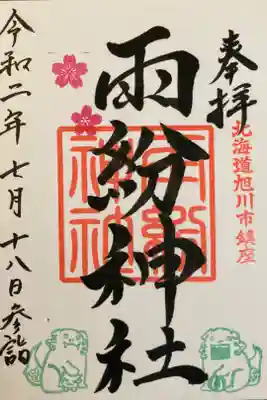 奉拝
北海道旭川市鎮座
雨紛神社
雨紛神社
令和二年七月十八日参詣